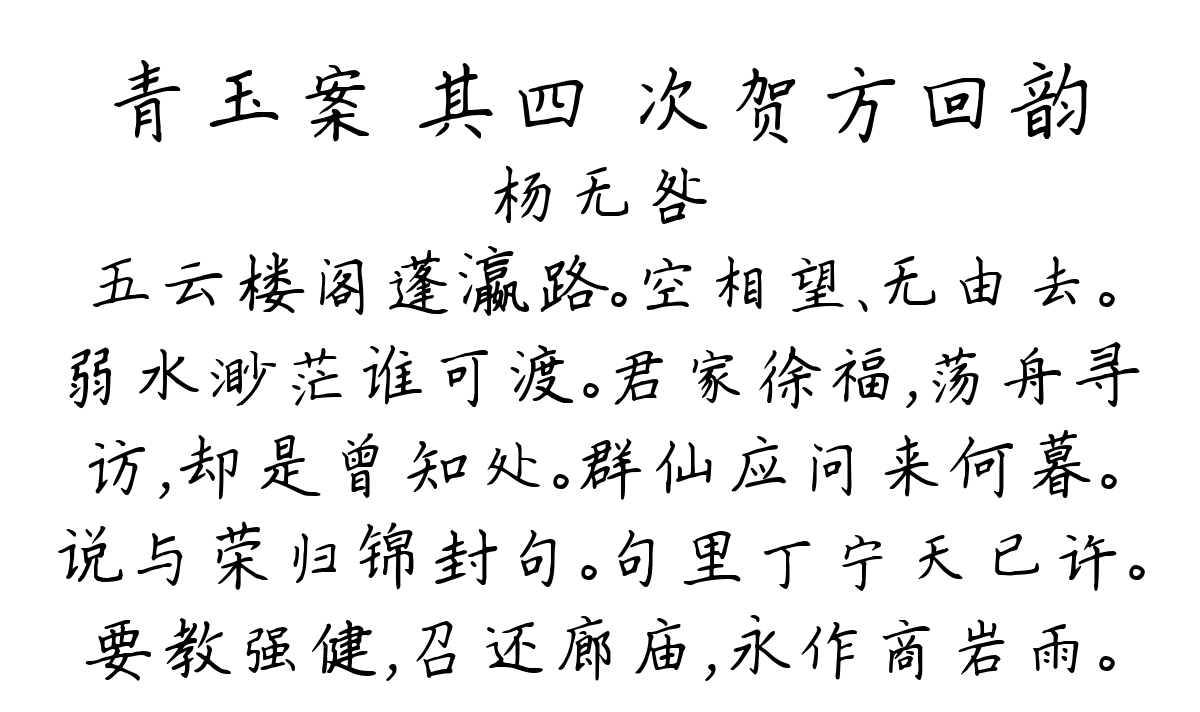 青玉案 其四 次贺方回韵
杨无咎
五云楼阁蓬瀛路。空相望、无由去。
弱水渺茫谁可渡。君家徐福,荡舟寻
访,却是曾知处。群仙应问来何暮。
说与荣归锦封句。句里丁宁天已许。
要教强健,召还廊庙,永作商岩雨。